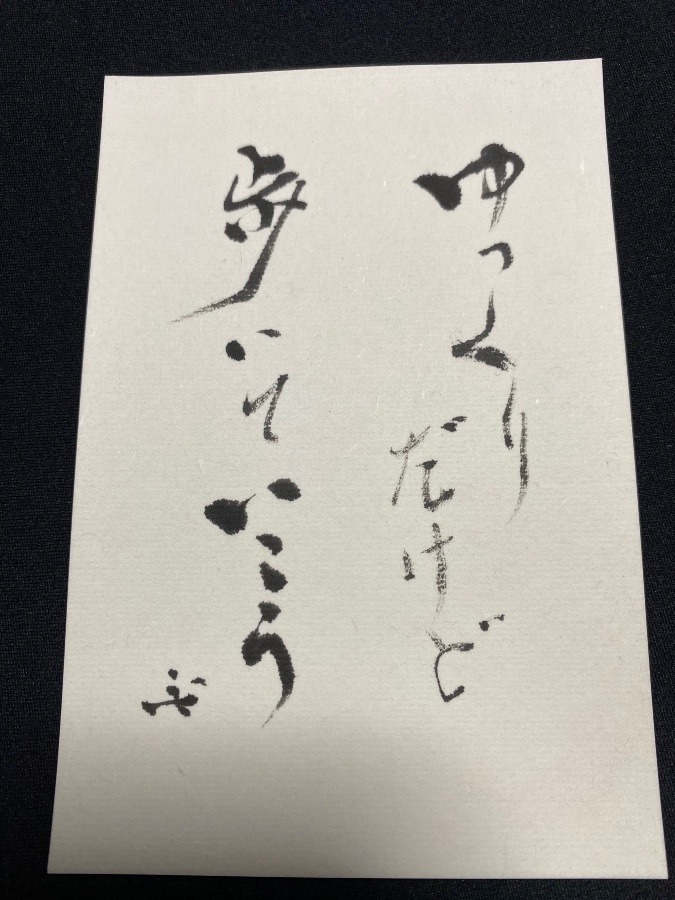 ゆっくり
だけど
歩いていこう